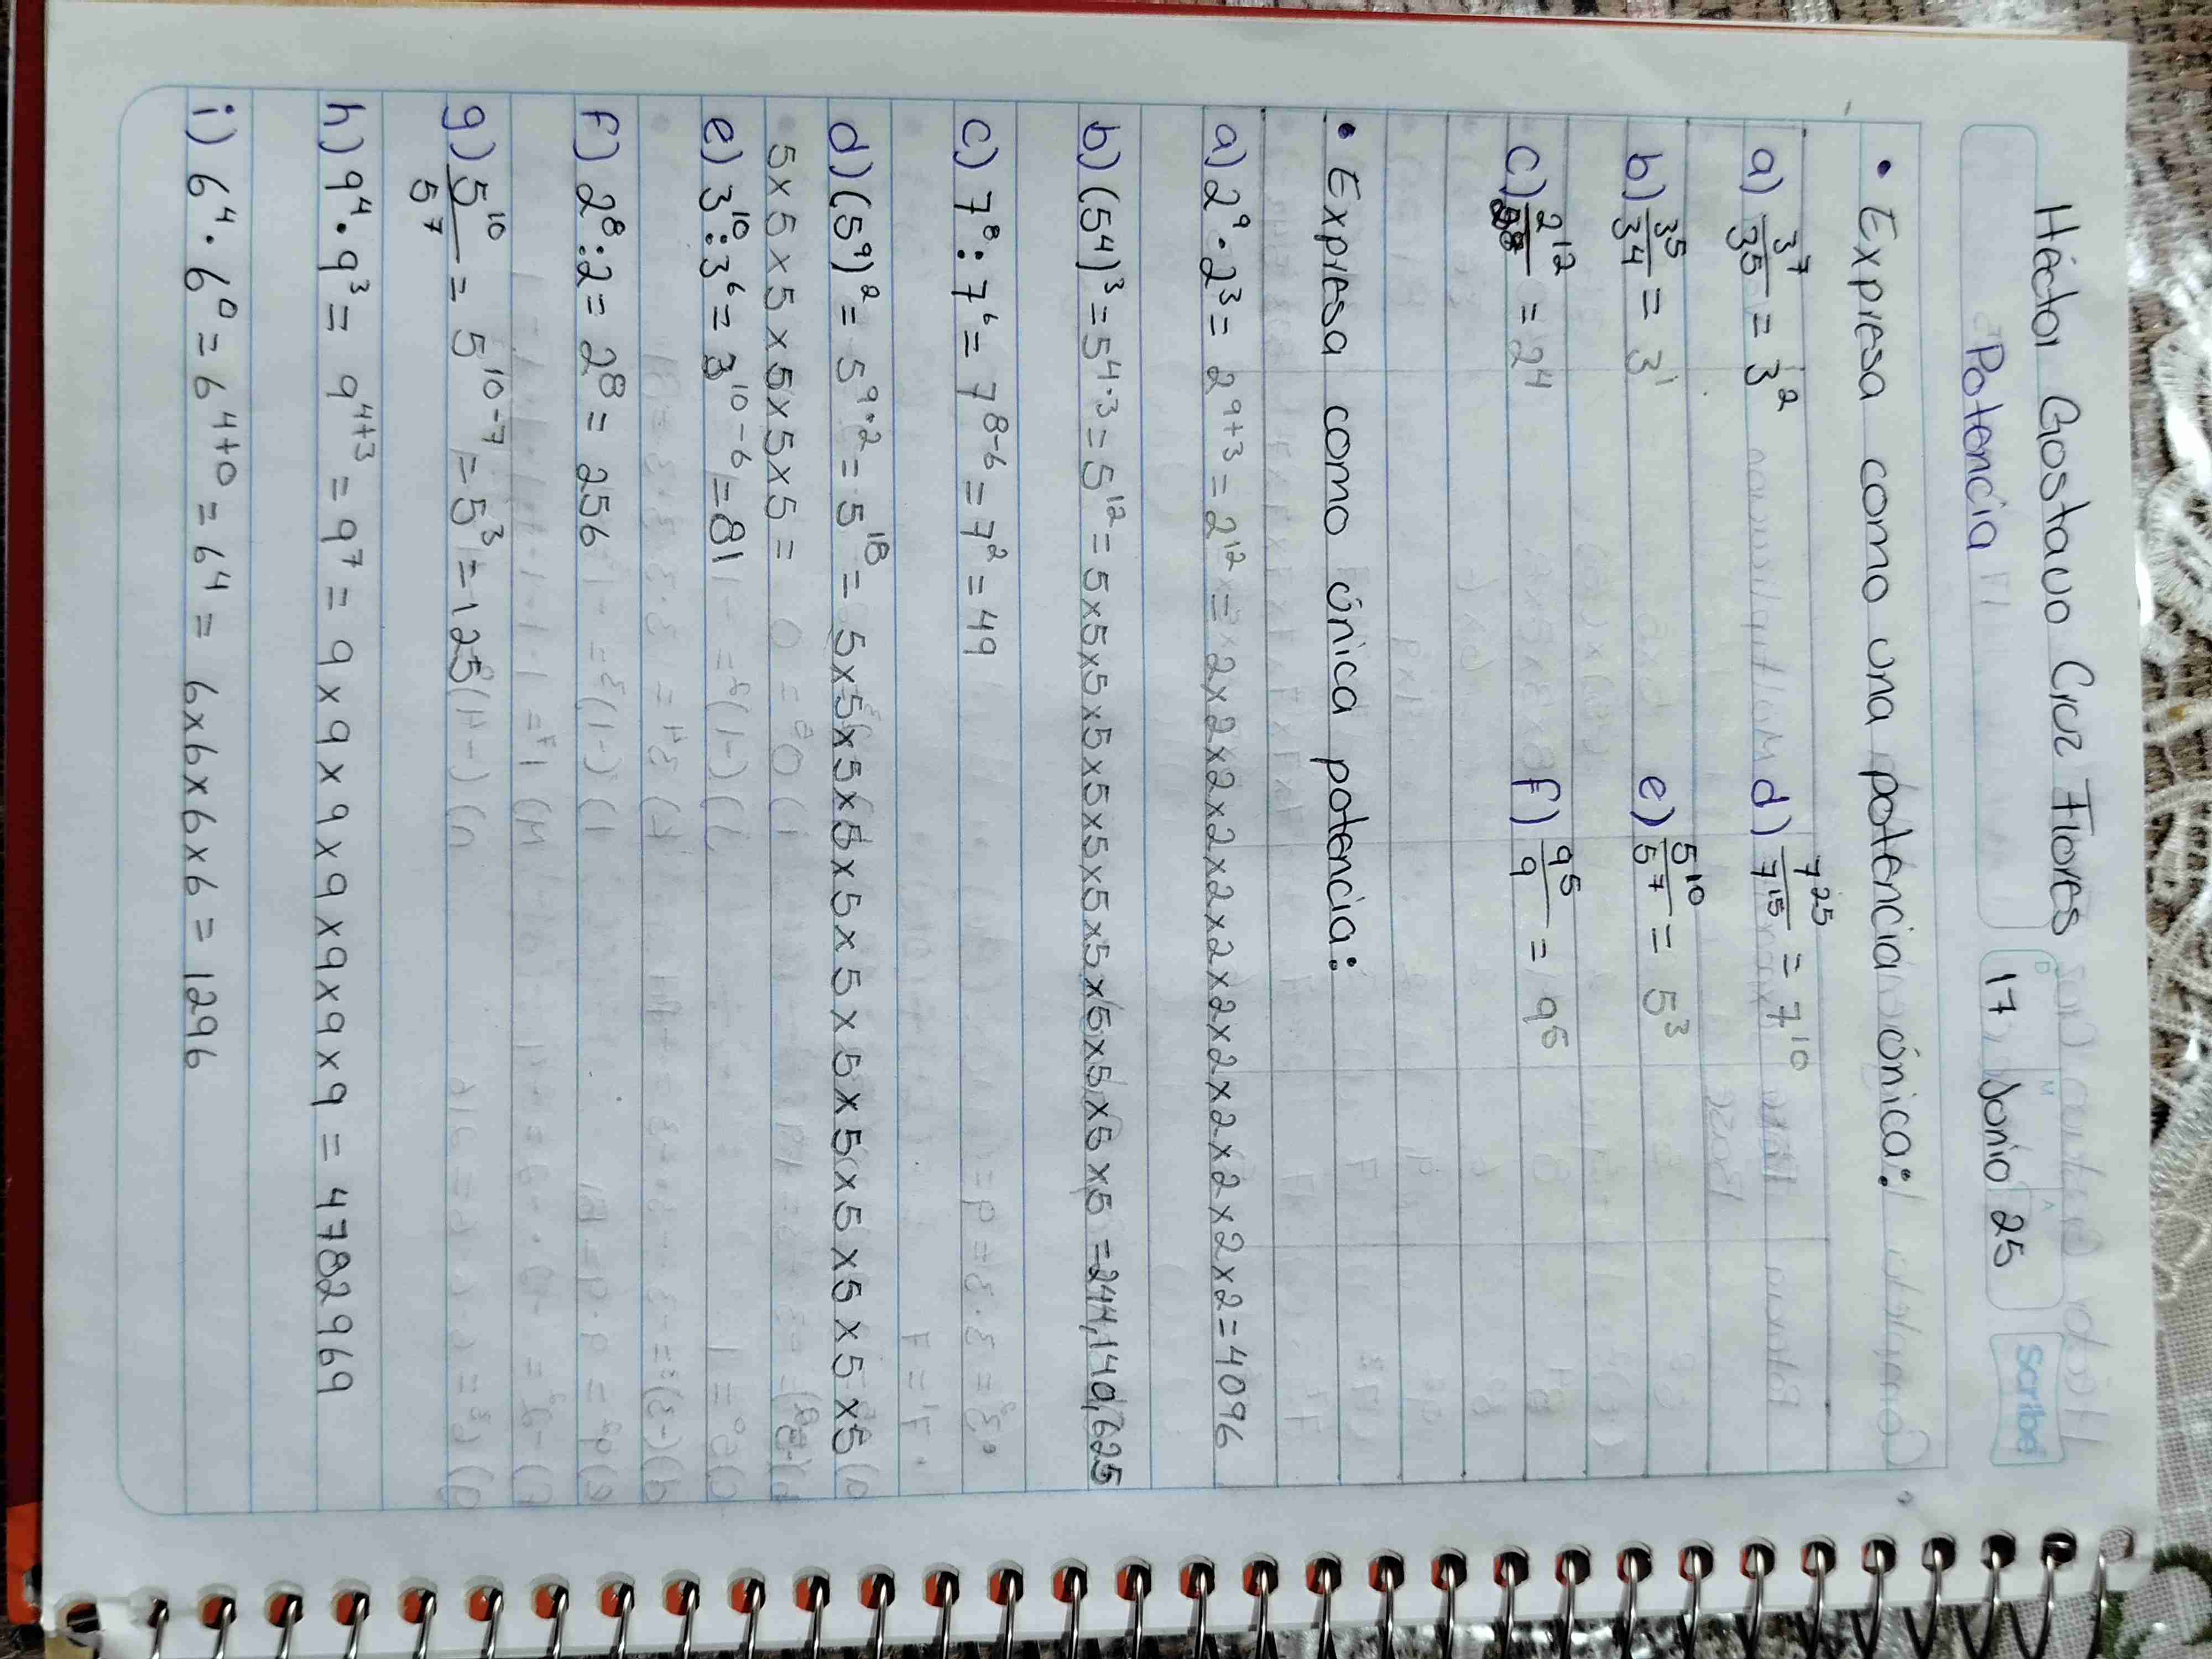 Héctor Gostavo Cruz Flores
Potencia
D M A
17 Junio 25
Scribe
• Expresa como una potencia única:
a) 3⁷/3⁵ = 3²
d) 7²⁵/7¹⁵ = 7¹⁰
b) 3⁵/3⁴ = 3¹
e) 5¹⁰/5⁷ = 5³
c) 2¹²/2⁸ = 2⁴
f) 9⁵/9 = 9⁵
• Expresa como única potencia:
a) 2⁹ · 2³ = 2⁹⁺³ = 2¹² = 2x2x2x2x2x2x2x2x2x2x2x2 = 4096
b) (5⁴)³ = 5⁴·³ = 5¹² = 5x5x5x5x5x5x5x5x5x5x5x5 = 244,140,625
c) 7⁸ : 7⁶ = 7⁸⁻⁶ = 7² = 49
d) (5⁹)² = 5⁹·² = 5¹⁸ = 5x5x5x5x5x5x5x5x5x5x5x5
5x5x5x5x5x5x5 =
e) 3¹⁰ : 3⁶ = 3¹⁰⁻⁶ = 81
f) 2⁸ : 2 = 2⁸ = 256
g) 5¹⁰/5⁷ = 5¹⁰⁻⁷ = 5³ = 125
h) 9⁴ · 9³ = 9⁴⁺³ = 9⁷ = 9x9x9x9x9x9x9 = 4782969
i) 6⁴ · 6⁰ = 6⁴⁺⁰ = 6⁴ = 6x6x6x6 = 1296